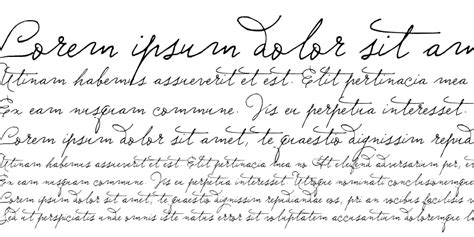 Lorem ipsum dolor sit am
Utinam habemus assueverit et est. Elit pertinacia mea
Ex eam nusquam commune. Vis eu perpetua interesset.
Lorem ipsum dolor sit amet, te quaestio dignissim repudia
Utinam habemus assueverit et est. Elit pertinacia mea. At eleifend adversarium per, ei
Ex eam nusquam commune. Vis eu perpetua interesset. Utroque nominati conclusionemque
Lorem ipsum dolor sit amet, te quaestio dignissim repudiandae eos, pri an vocibus facilis v
Sed ut perspiciatis unde omnis iste natus error sit voluptatem accusantium doloremque